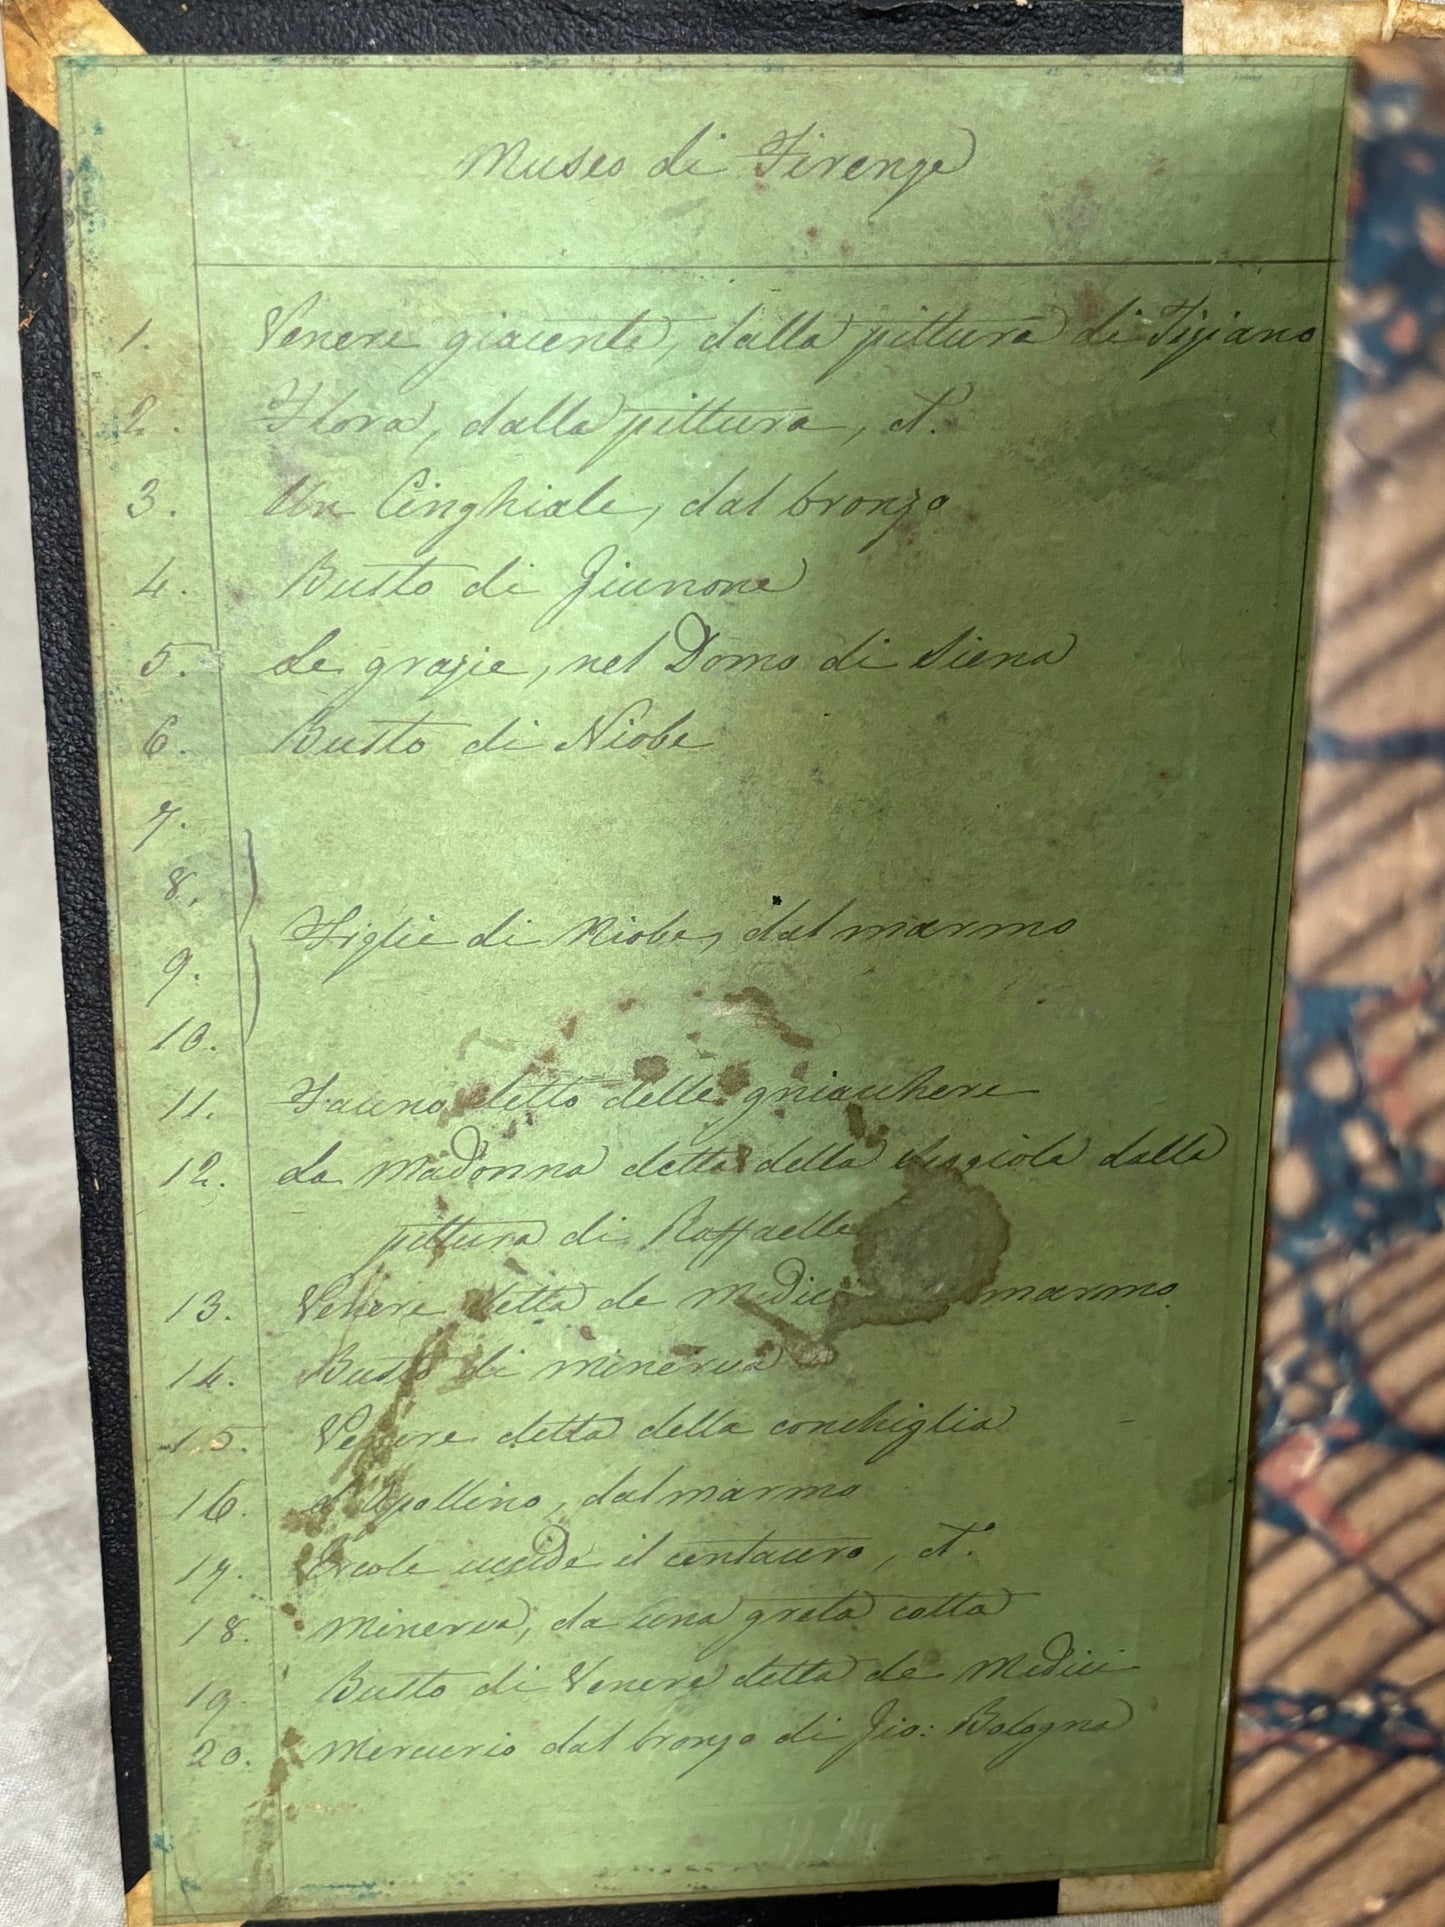 Museo di Firenze
1. Venere giacente, dalla pittura di Tiziano
2. Flora, dalla pittura, d°.
3. Un Cinghiale, dal bronzo
4. Busto di Giunone
5. Le grazie, nel Domo di Siena
6. Busto di Niobe
7.
8.
Figlie di Niobe, dal marmo
9.
10.
11. Fauno detto delle gniacchere
12. La Madonna detta della Seggiola dalla
pittura di Raffaelle
13. Venere detta de Medici marmo
14. Busto di Minerva
15. Venere detta della conchiglia
16. L'Apollino, dal marmo
17. Ercole uccide il centauro, d°.
18. Minerva, da una greta cotta
19. Busto di Venere detta de Medici
20. Mercurio dal bronzo di Gio: Bologna